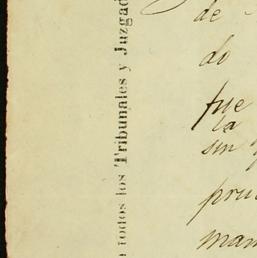 a todos los Tribunales y Juzgad
de
do
fue
la
sin
pru
man